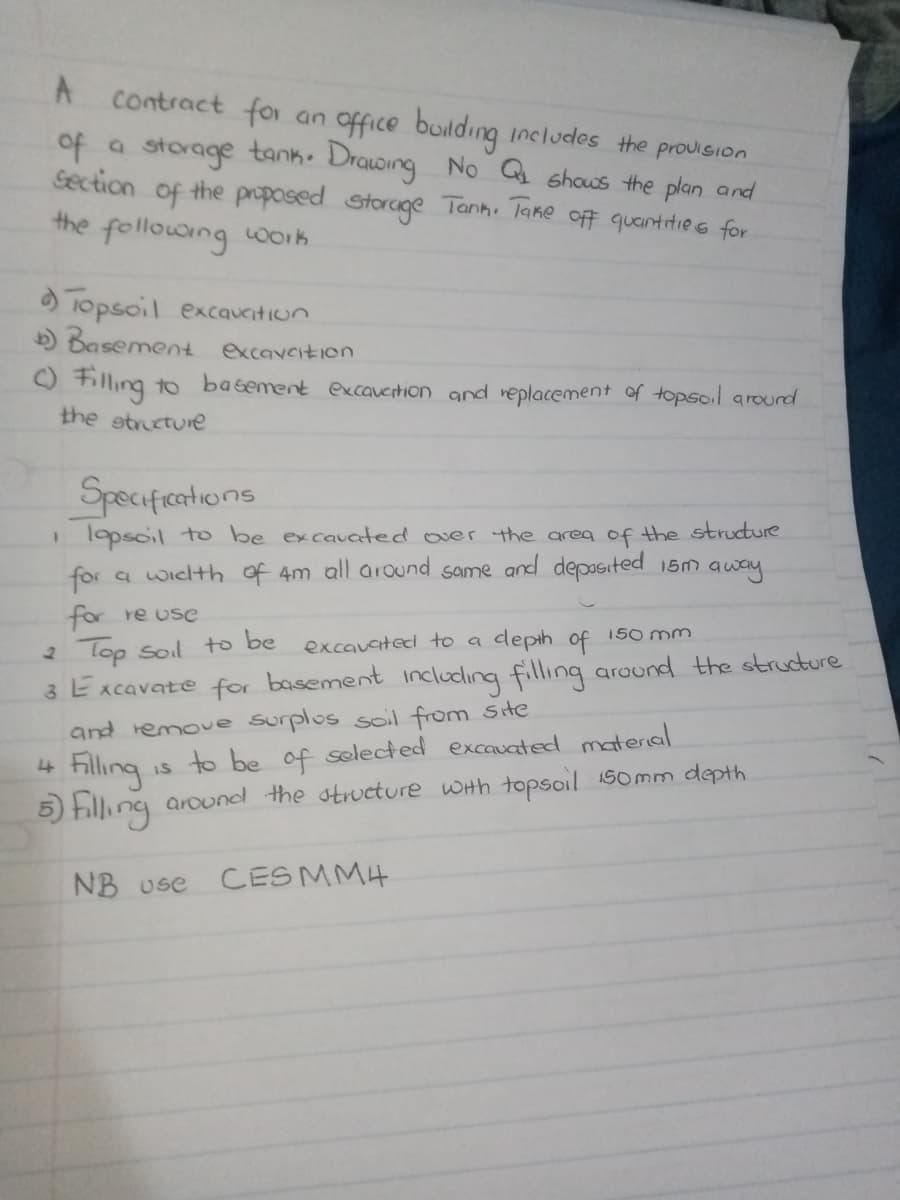 A contract for an office building includes the provision
of a storage tank. Drawing No Q1 shows the plan and
section of the proposed storage Tank. Take off quantities for
the following work
a) Topsoil excavation
b) Basement excavation
c) Filling to basement excavation and replacement of topsoil around
the structure
Specifications
1 Topsoil to be excavated over the area of the structure
for a width of 4m all around same and deposited 15m away
for re use
2 Top soil to be excavated to a depth of 150 mm
3 Excavate for basement including filling around the structure
and remove surplus soil from site
4 Filling is to be of selected excavated material
5) Filling around the structure with topsoil 150mm depth
NB use CESMM4